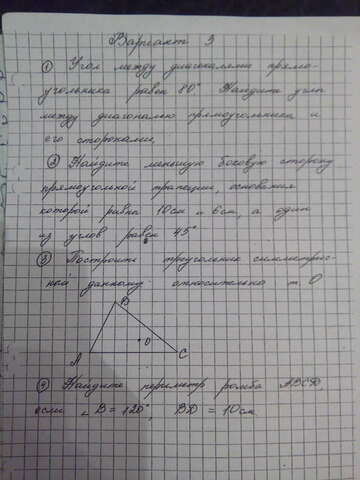 Вариант 3
① Угол между диагоналями прямо-
угольника равен 80° Найдите углы
между диагональю прямоугольника и
его сторонами.
② Найдите меньшую боковую сторону
прямоугольной трапеции, основания
которой равны 10см и 6см, а один
из углов равен 45°
③ Построить треугольник симметрич-
ный данному относительно т О
B
O
A
C
④ Найдите периметр ромба ABCD,
если ∠B = 120°, BD = 10см